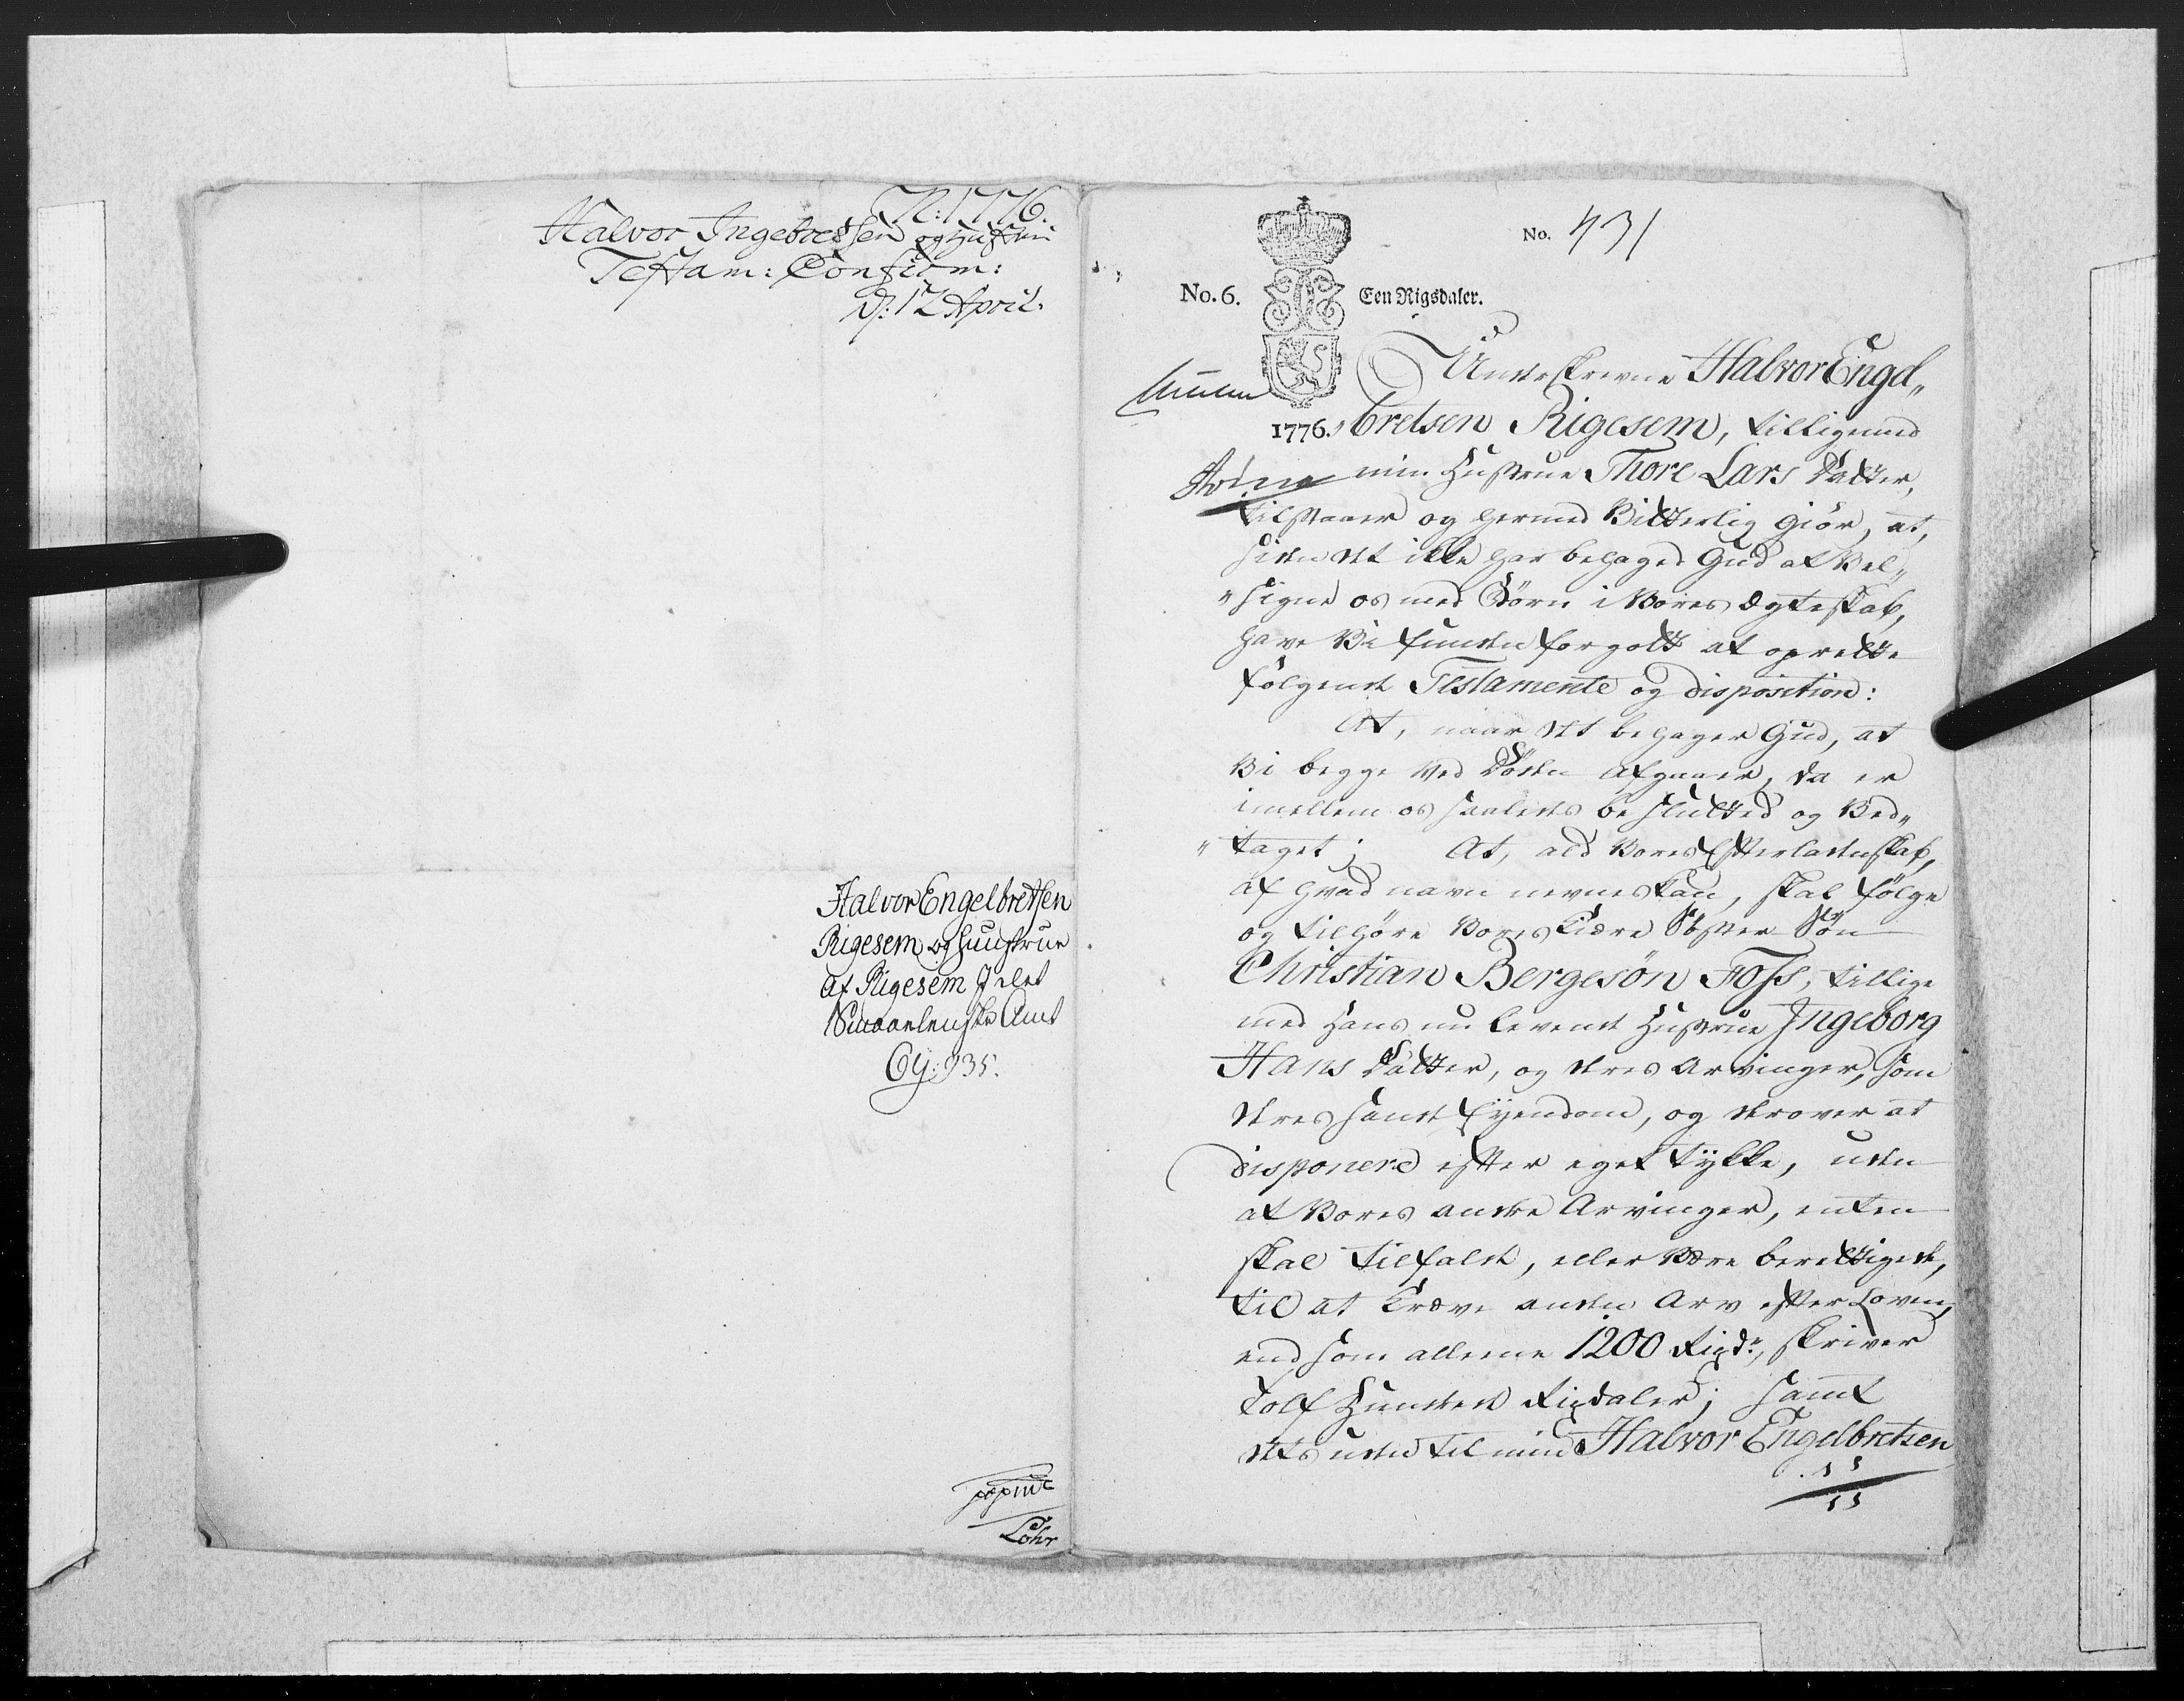 N: 1776.
Halvor Ingebretsen og Hustru
Testam: Confirm:
D: 12 April.
Halvor Engelbretsen
Rigesem og Huustrue
af Rigesem J det
Smaalenske Amt
935.
Lohr
No. 431
No. 6. Een Rigsdaler.
Underskrevne Halvor Engel„
1776. bretsen Rigesem, tilligemed
min Hustrue Thore Lars Datter,
tilstaaer og hermed Vitterlig giör, at,
siden det ikke har behaged Gud at Vel„
„signe os med Börn i Vores Ægteskab,
have Vi funden for godt at oprette
følgende Testamente og disposition:
At, naar det behager Gud, at
Vi begge ved Döden afgaaer, da er
imellem os saaledes beslutted og Ved„
„taget; At, ald Vores Efterladenskab,
af hvad navn nevnes kan, skal følge
og tilhøre Vores kiære Söster Sön
Christian Bergesön Foss, tillige
med Hans nu levende Hustrue Ingeborg
Hans Datter, og deres Arvinger, som
deres sande Eyendom, og derover at
disponere efter eget tykke, uden
at Vores andre Arvinger, enten
skal tilfalde, eller være berettigede,
til at kræve anden Arv efter Loven,
end som allene 1200 Rigd:, skriver
Tolf Hundrede Rigdaler; samt
desuden til min Halvor Engelbretsen